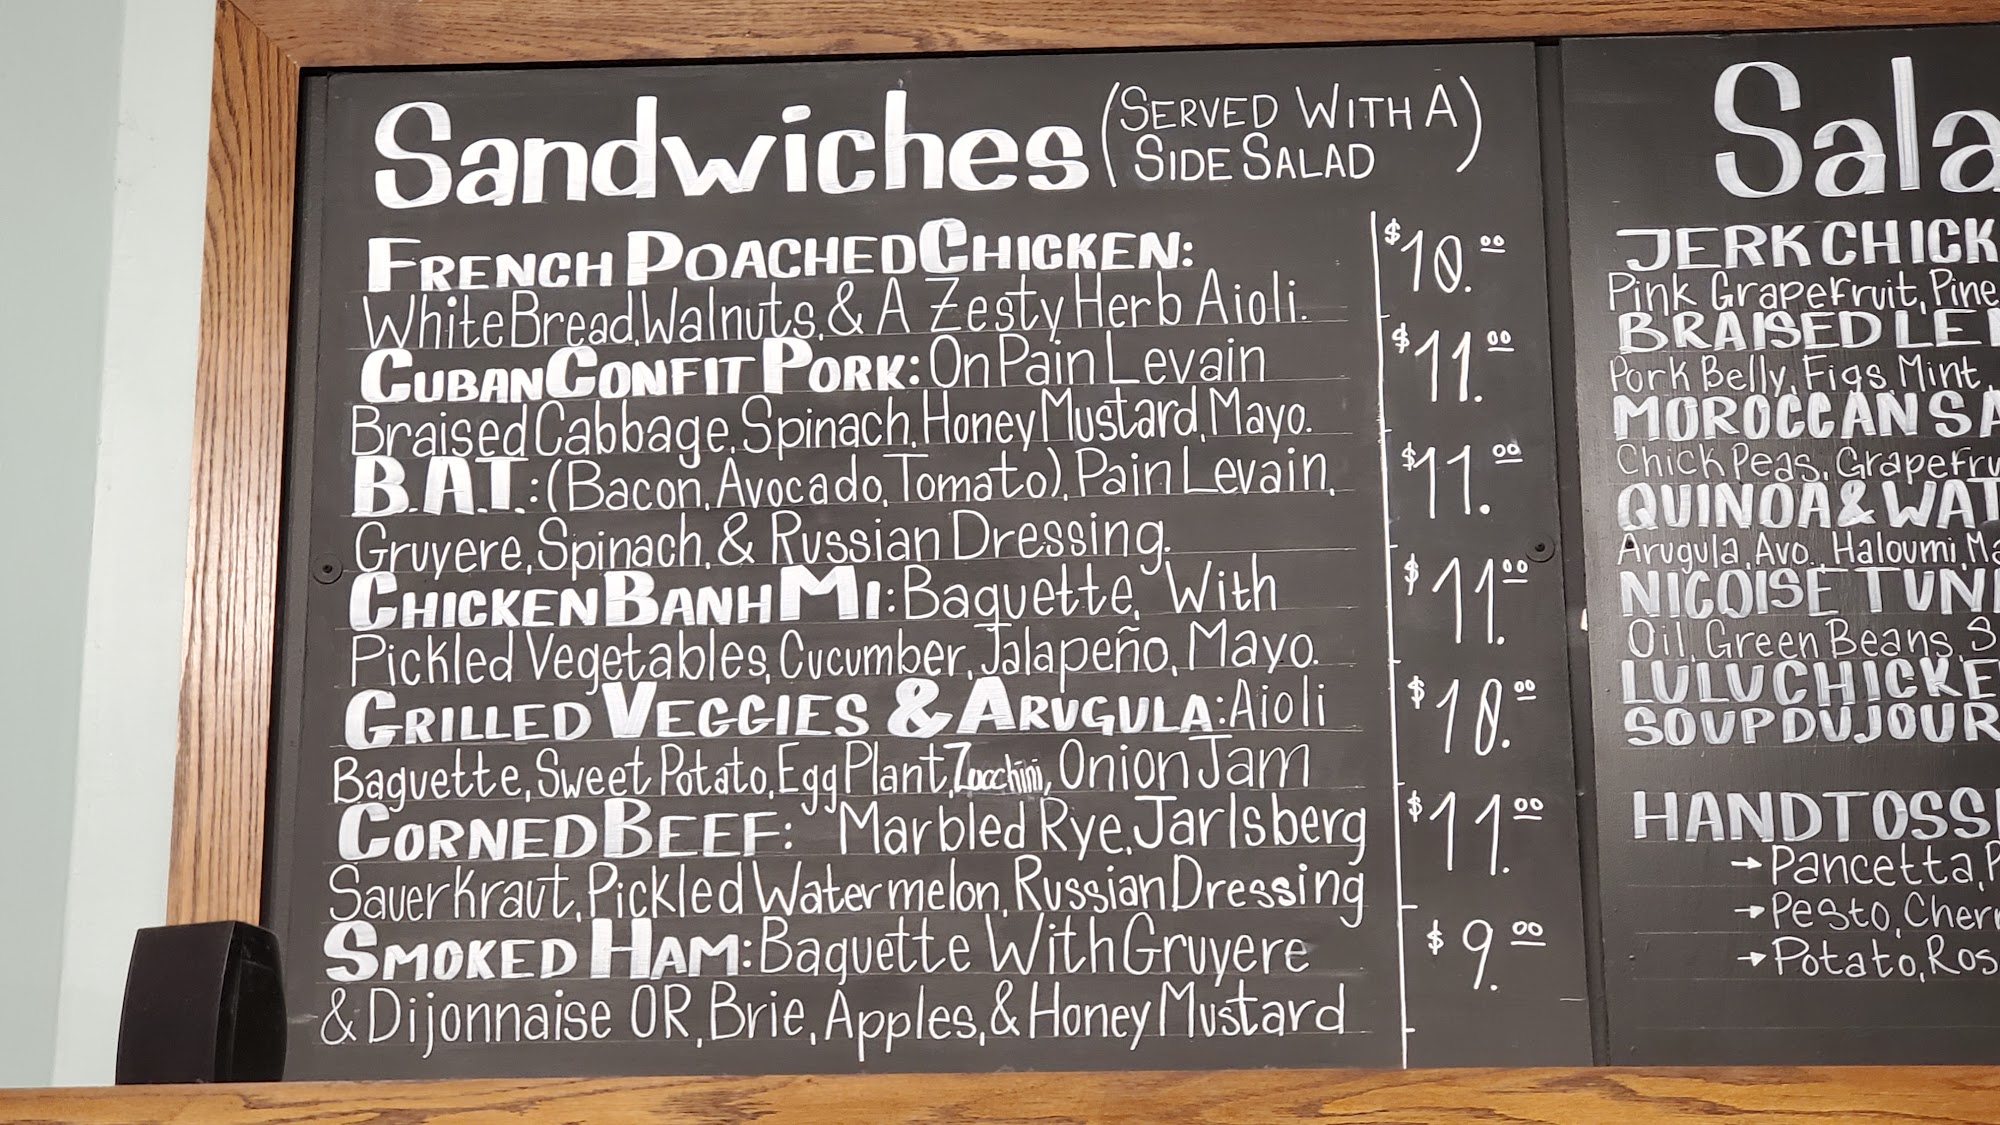 Sandwiches (SERVED WITH A SIDE SALAD)
FRENCH POACHED CHICKEN: $10.00
White Bread, Walnuts, & A Zesty Herb Aioli.
CUBAN CONFIT PORK: On Pain Levain $11.00
Braised Cabbage, Spinach, Honey Mustard, Mayo.
B.A.T.: (Bacon, Avocado, Tomato), Pain Levain, $11.00
Gruyere, Spinach, & Russian Dressing.
CHICKEN BANH MI: Baguette, With $11.00
Pickled Vegetables, Cucumber, Jalapeño, Mayo.
GRILLED VEGGIES & ARUGULA: Aioli $10.00
Baguette, Sweet Potato, Egg Plant, Zucchini, Onion Jam
CORNED BEEF: Marbled Rye, Jarlsberg $11.00
Sauerkraut, Pickled Watermelon, Russian Dressing
SMOKED HAM: Baguette With Gruyere $9.00
& Dijonnaise OR, Brie, Apples, & Honey Mustard
Sala
JERK CHICK
Pink Grapefruit, Pine
BRAISED LE
Pork Belly, Figs, Mint,
MOROCCAN SA
Chick Peas, Grapefru
QUINOA & WAT
Arugula, Avo., Haloumi, Ma
NICOISE TUN
Oil, Green Beans, S
LULU CHICKE
SOUP DU JOUR
HAND TOSS
→ Pancetta, P
→ Pesto, Cherr
→ Potato, Ros